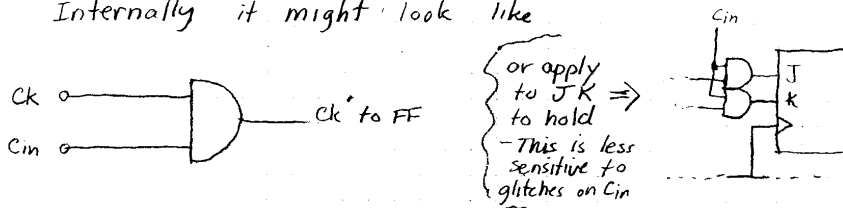 Internally it might look like
Ck
Cin
Ck' to FF
or apply
to JK ⇒
to hold
- This is less
sensitive to
glitches on Cin
Cin
J
K